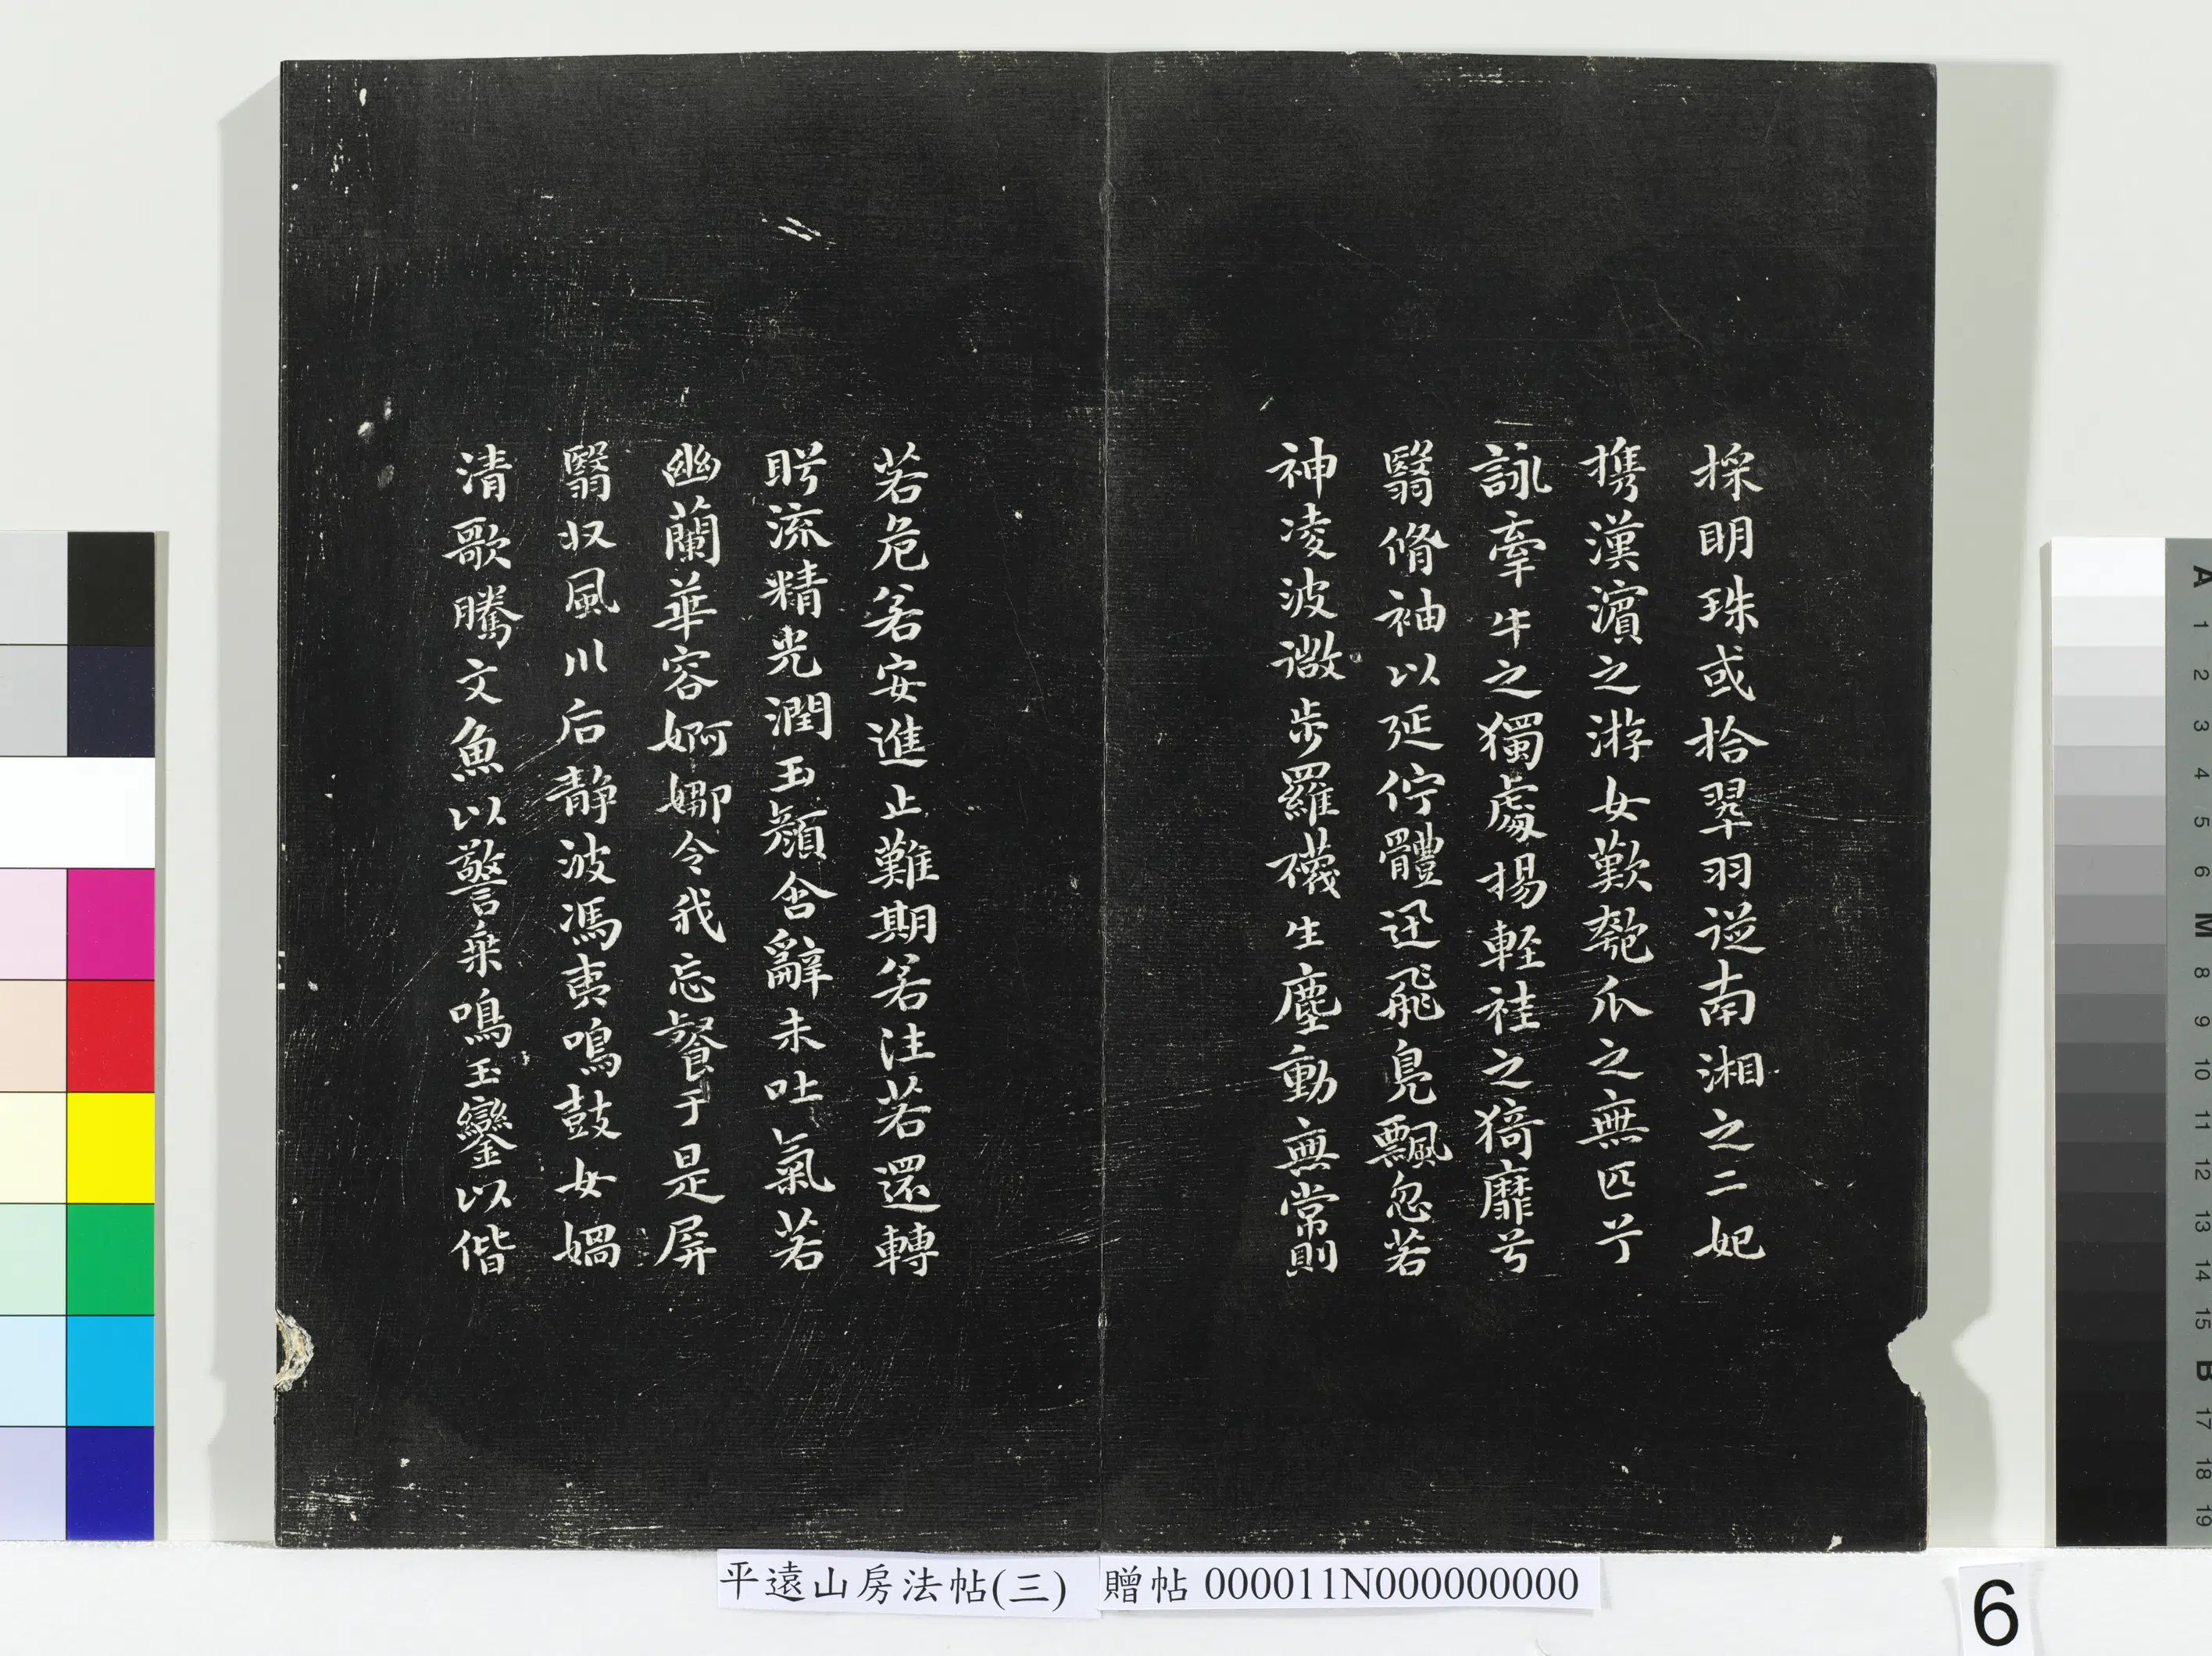 採明珠或拾翠羽從南湘之二妃
携漢濱之游女歎匏瓜之無匹兮
詠牽牛之獨處揚輕袿之猗靡兮
翳脩袖以延佇體迅飛鳧飄忽若
神凌波微步羅襪生塵動無常則
若危若安進止難期若注若還轉
眄流精光潤玉顏含辭未吐氣若
幽蘭華容婀娜令我忘餐于是屏
翳収風川后静波馮夷鳴鼓女媧
清歌騰文魚以警乘鳴玉鑾以偕
平遠山房法帖(三) 贈帖 000011N000000000
6
A 1 2 3 4 5 6 M 8 9 10 11 12 13 14 15 B 17 18 19